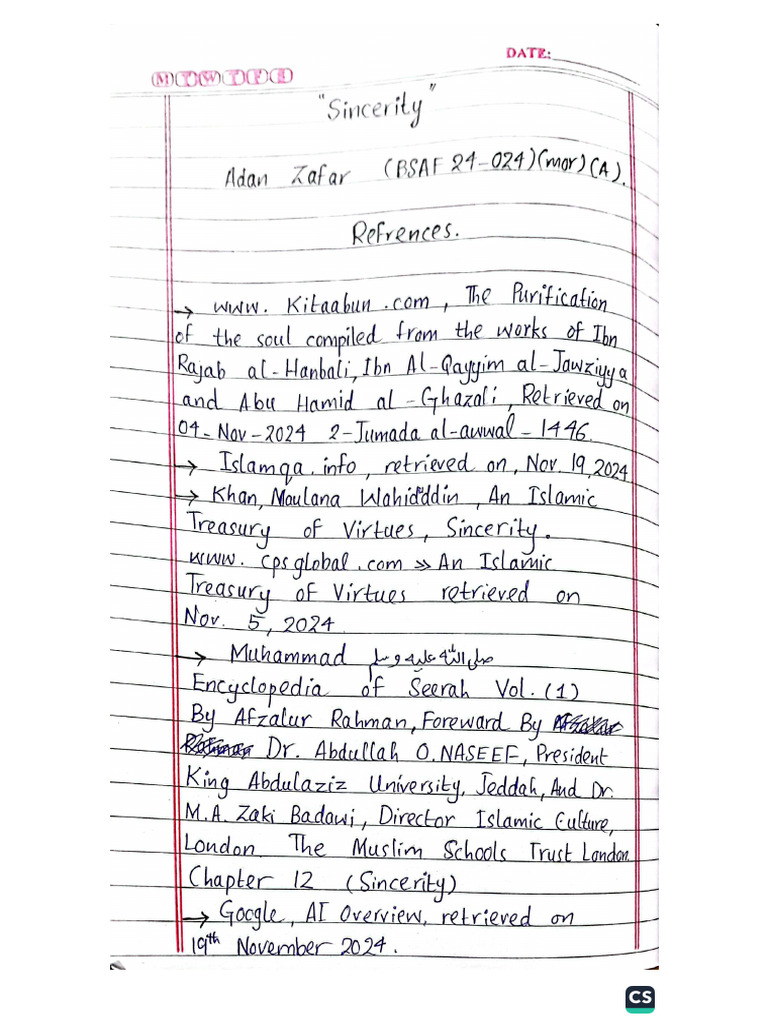 DATE:
M T W T F S
"Sincerity"
Adan Zafar (BSAF 24-024)(mor)(A).
Refrences.
→ www. Kitaabun.com, The Purification
of the soul compiled from the works of Ibn
Rajab al-Hanbali, Ibn Al-Qayyim al-Jawziyya
and Abu Hamid al-Ghazali, Retrieved on
04-Nov-2024 2-Jumada al-awwal-1446.
→ Islamqa.info, retrieved on, Nov. 19, 2024
→ Khan, Maulana Wahiduddin, An Islamic
Treasury of Virtues, Sincerity.
www. cpsglobal.com » An Islamic
Treasury of Virtues retrieved on
Nov. 5, 2024
→ Muhammad صلى الله عليه وسلم
Encyclopedia of Seerah Vol. (1)
By Afzalur Rahman, Foreward By
Dr. Abdullah O.NASEEF, President
King Abdulaziz University, Jeddah, And Dr.
M.A. Zaki Badawi, Director Islamic Culture,
London. The Muslim Schools Trust London
Chapter 12 (Sincerity)
→ Google, AI Overview, retrieved on
19th November 2024.
CS